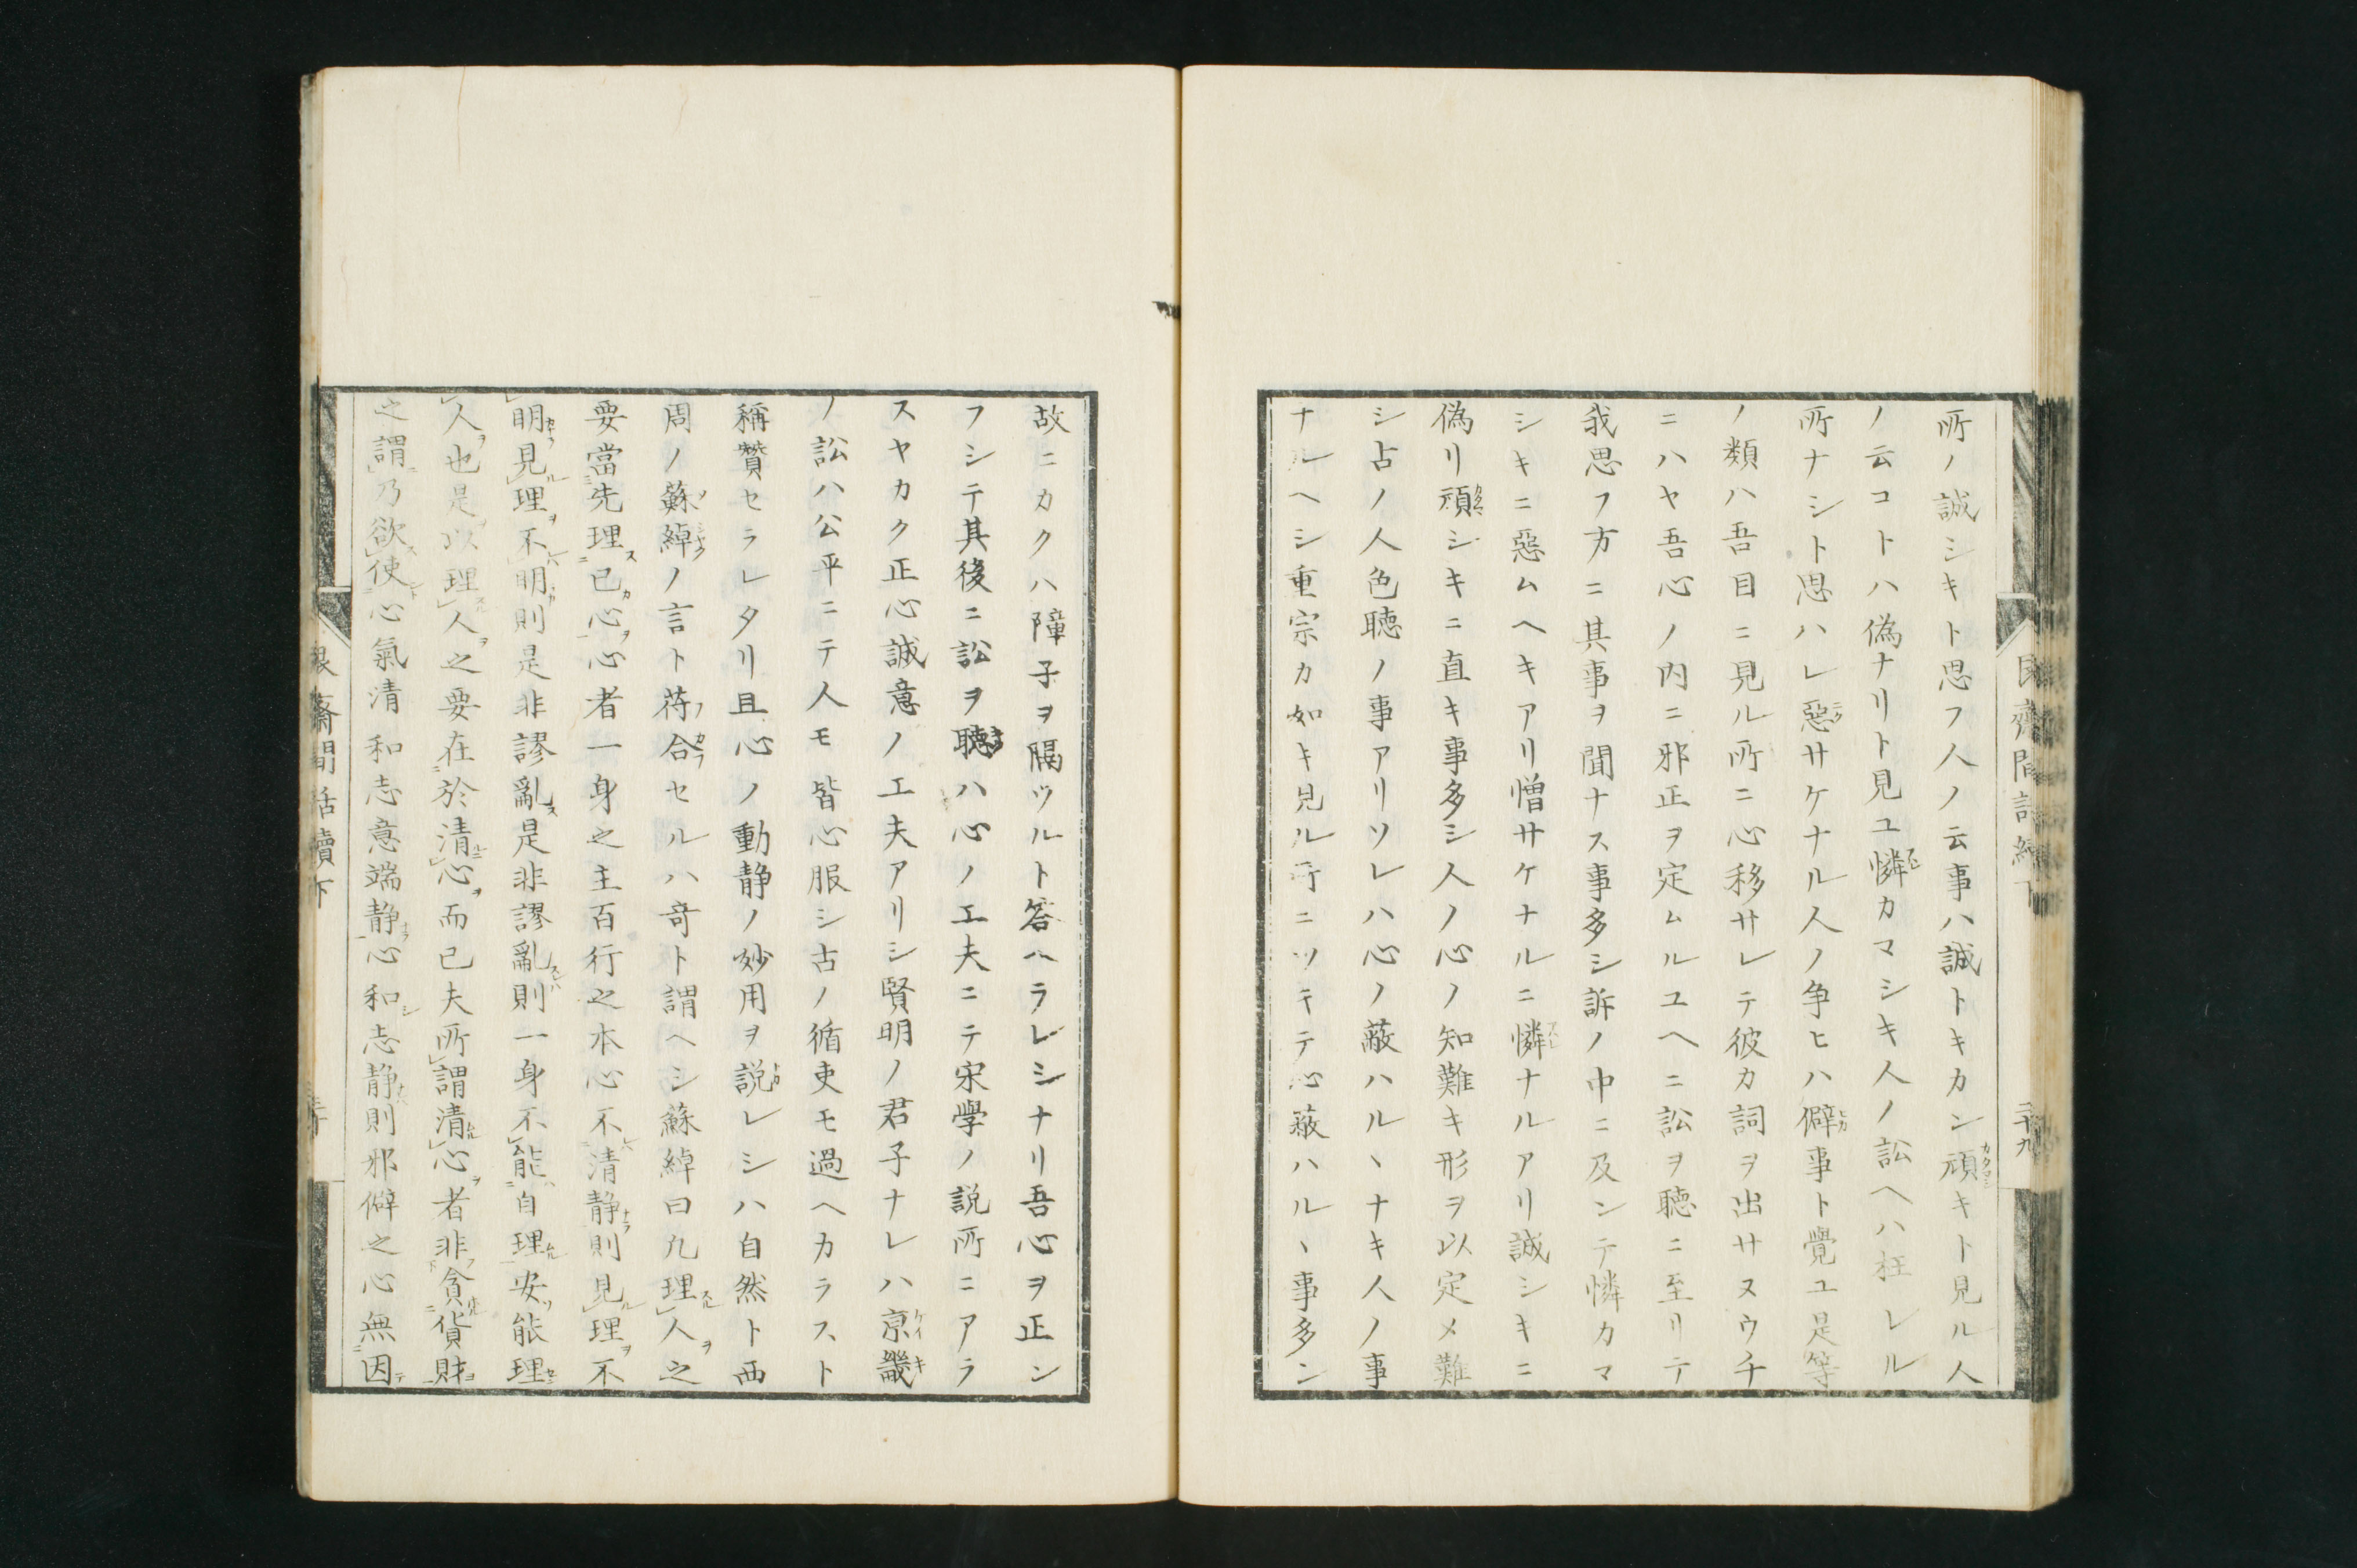 所ノ誠シキト思フ人ノ云事ハ誠トキカン頑キト見ル人
ノ云コトハ偽ナリト見ユ憐カマシキ人ノ訟ヘハ枉レル
所ナシト思ハレ惡サケナル人ノ争ヒハ僻事ト覺ユ是等
ノ類ハ吾目ニ見ル所ニ心移サレテ彼カ詞ヲ出サヌウチ
ニハヤ吾心ノ内ニ邪正ヲ定ムルユヘニ訟ヲ聴ニ至リテ
我思フ方ニ其事ヲ聞ナス事多シ訴ノ中ニ及ンテ憐カマ
シキニ惡ムヘキアリ憎サケナルニ憐ナルアリ誠シキニ
偽リ頑シキニ直キ事多シ人ノ心ノ知難キ形ヲ以定メ難
シ古ノ人色聴ノ事アリソレハ心ノ蔽ハルヽナキ人ノ事
ナルヘシ重宗カ如キ見ル所ニツキテ心蔽ハルヽ事多ン
故ニカクハ障子ヲ隔ツルト答ヘラレシナリ吾心ヲ正ン
フシテ其後ニ訟ヲ聴ハ心ノ工夫ニテ宋學ノ説所ニアラ
スヤカク正心誠意ノ工夫アリシ賢明ノ君子ナレハ京畿
ノ訟ハ公平ニテ人モ皆心服シ古ノ循吏モ過ヘカラスト
稱贊セラレタリ且心ノ動静ノ妙用ヲ説レシハ自然ト西
周ノ蘇綽ノ言ト苻合セルハ奇ト謂ヘシ蘇綽曰凢理人之
要當先理已心心者一身之主百行之本心不清静則見理不
明見理不明則是非謬亂是非謬亂則一身不能自理安能理
人也是以理人之要在於清心而已夫所謂清心者非貪貨財
之謂乃欲使心氣清和志意端静心和志静則邪僻之心無因
齋間話續下
二十九